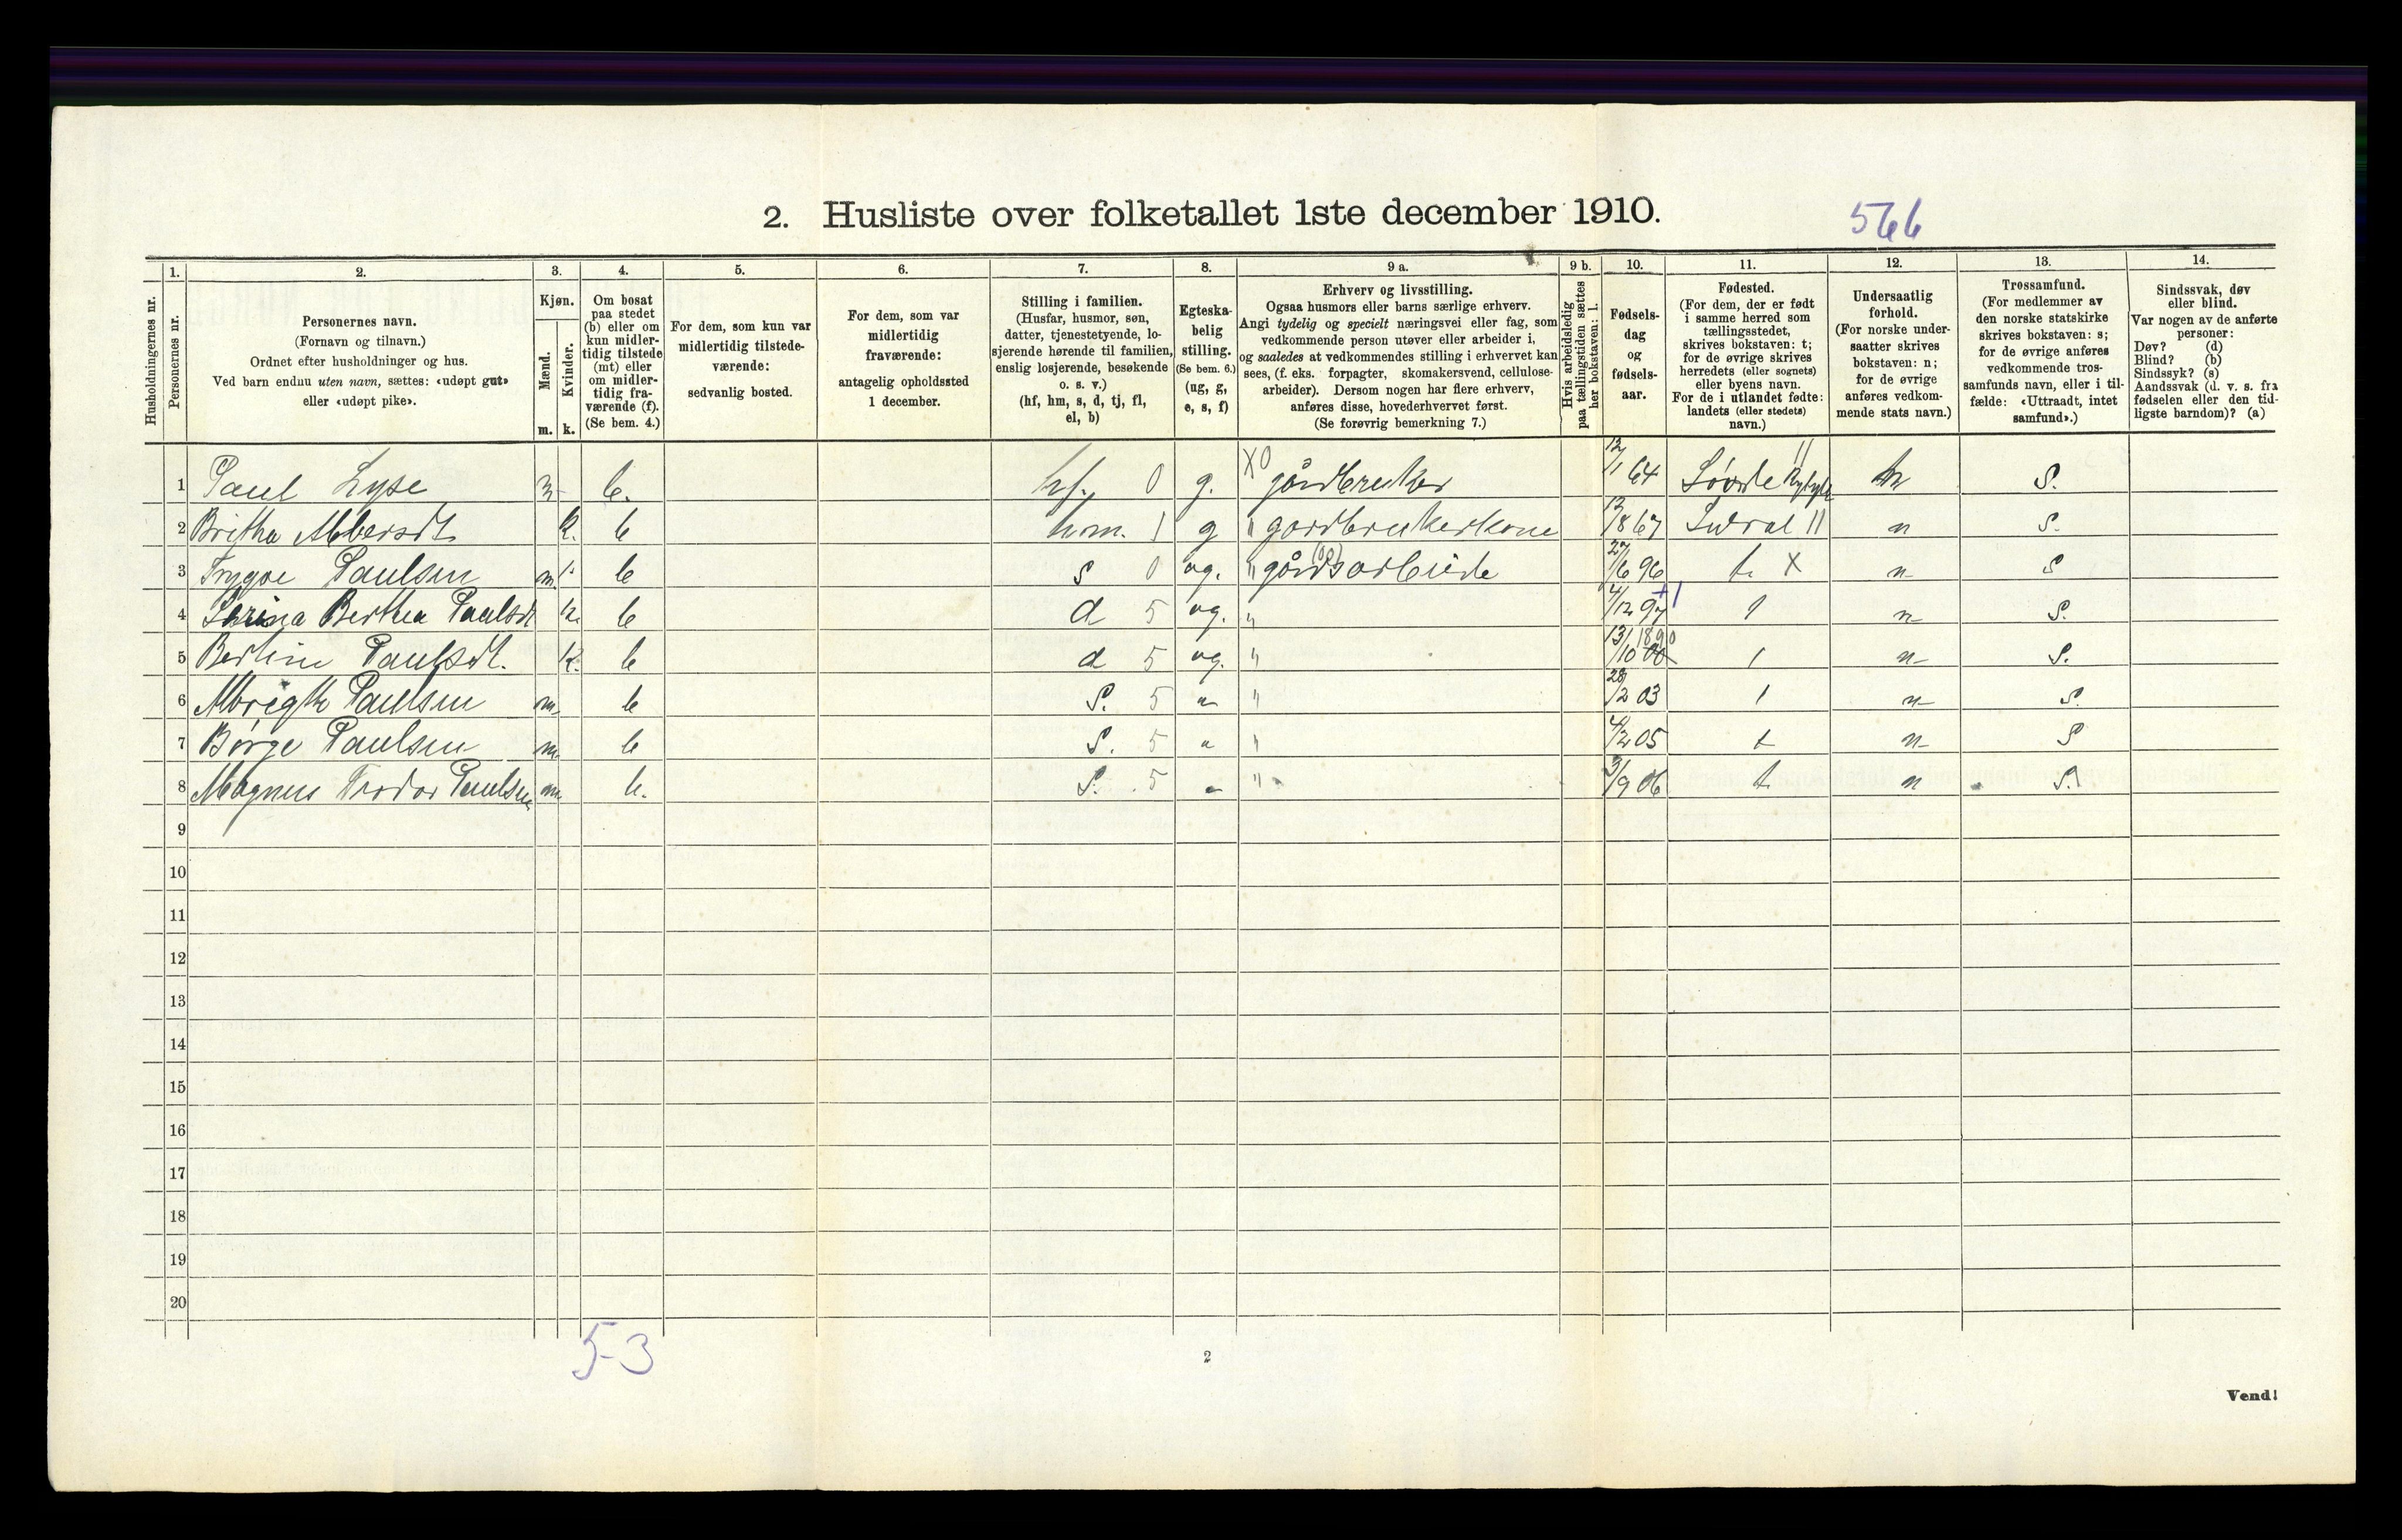 2. Husliste over folketallet 1ste december 1910.
566
Husholdningernes nr.
1. Personernes nr.
2. Personernes navn.
(Fornavn og tilnavn.)
Ordnet efter husholdninger og hus.
Ved barn endnu uten navn, sættes: «udøpt gut»
eller «udøpt pike».
3. Kjøn.
Mænd. Kvinder.
m. k.
4. Om bosat
paa stedet
(b) eller om
kun midler-
tidig tilstede
(mt) eller
om midler-
tidig fra-
værende (f).
(Se bem. 4.)
5. For dem, som kun var
midlertidig tilstede-
værende:
sedvanlig bosted.
6. For dem, som var
midlertidig
fraværende:
antagelig opholdssted
1 december.
7. Stilling i familien.
(Husfar, husmor, søn,
datter, tjenestetyende, lo-
sjerende hørende til familien,
enslig losjerende, besøkende
o. s. v.)
(hf, hm, s, d, tj, fl,
el, b)
8. Egteska-
belig
stilling.
(Se bem. 6.)
(ug, g,
e, s, f)
9 a. Erhverv og livsstilling.
Ogsaa husmors eller barns særlige erhverv.
Angi tydelig og specielt næringsvei eller fag, som
vedkommende person utøver eller arbeider i,
og saaledes at vedkommendes stilling i erhvervet kan
sees, (f. eks. forpagter, skomakersvend, cellulose-
arbeider). Dersom nogen har flere erhverv,
anføres disse, hovederhvervet først.
(Se forøvrig bemerkning 7.)
9 b. Hvis arbeidsledig
paa tællingstiden sættes
her bokstaven: l.
10. Fødsels-
dag
og
fødsels-
aar.
11. Fødested.
(For dem, der er født
i samme herred som
tællingsstedet,
skrives bokstaven: t;
for de øvrige skrives
herredets (eller sognets)
eller byens navn.
For de i utlandet fødte:
landets (eller stedets)
navn.)
12. Undersaatlig
forhold.
(For norske under-
saatter skrives
bokstaven: n;
for de øvrige
anføres vedkom-
mende stats navn.)
13. Trossamfund.
(For medlemmer av
den norske statskirke
skrives bokstaven: s;
for de øvrige anføres
vedkommende tros-
samfunds navn, eller i til-
fælde: «Uttraadt, intet
samfund».)
14. Sindssvak, døv
eller blind.
Var nogen av de anførte
personer:
Døv? (d)
Blind? (b)
Sindssyk? (s)
Aandssvak (d. v. s. fra
fødselen eller den tid-
ligste barndom)? (a)
1 Paul Lyse m b. hf. 0 g. X0 gårdbruker 12/1 64 n S.
2 Britha Albersdt. k. b hm. 1 g " gardbrukerkone 13/8 67 11 n S.
3 Trygve Paulsen m b s 0 ug. " gårdsarbeide 27/6 96 t. X n S
4 Bertha Paulsd k b d 5 ug. " 4/12 97 n S.
5 Bertine Paulsdt. k. b d 5 ug. " 13/10 1890 n S.
6 Paulsen m b S. 5 " " 28/2 03 n S.
7 Børge Paulsen m b S. 5 " " 4/2 05 t n S
8 Magnus Trodor Paulsen m b. S. 5 " " 3/9 06 t. n S.
9
10
11
12
13
14
15
16
17
18
19
20
5-3
2
Vend!